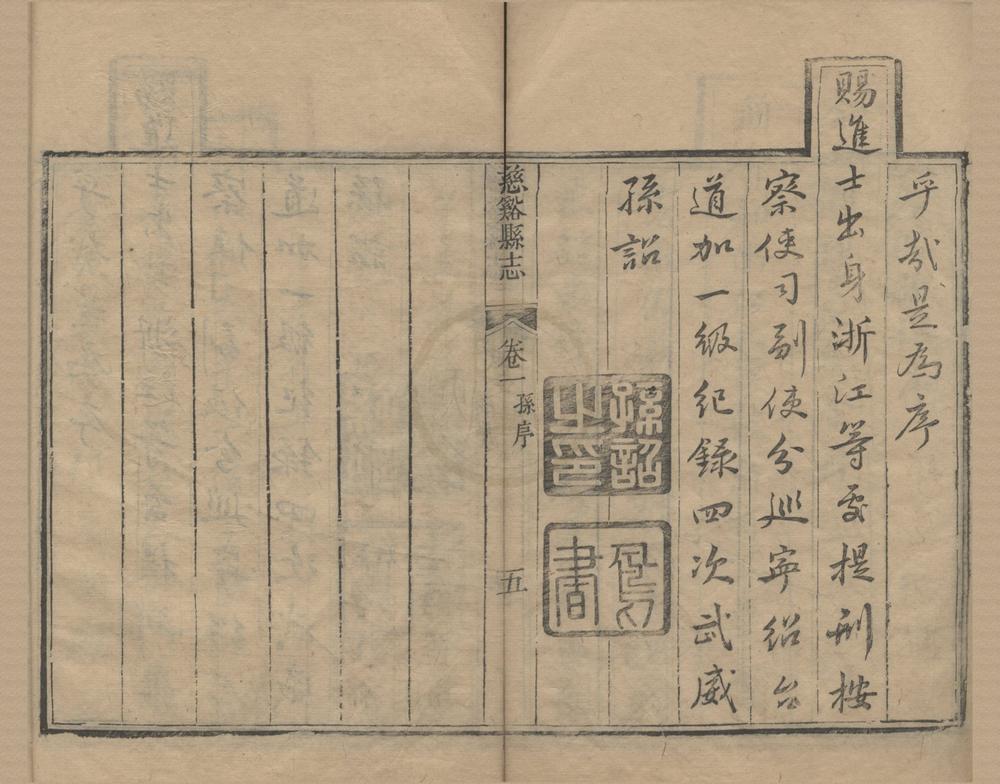 乎哉是為序
賜進士出身浙江等處提刑按
察使司副使分巡寧紹台
道加一級紀録四次武威
孫詔
孫詔之印
慈谿縣志
卷一
孫序
五